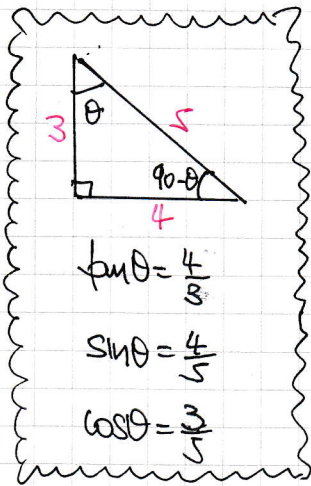 θ
3
5
90-θ
4
tanθ = 4/3
sinθ = 4/5
cosθ = 3/5